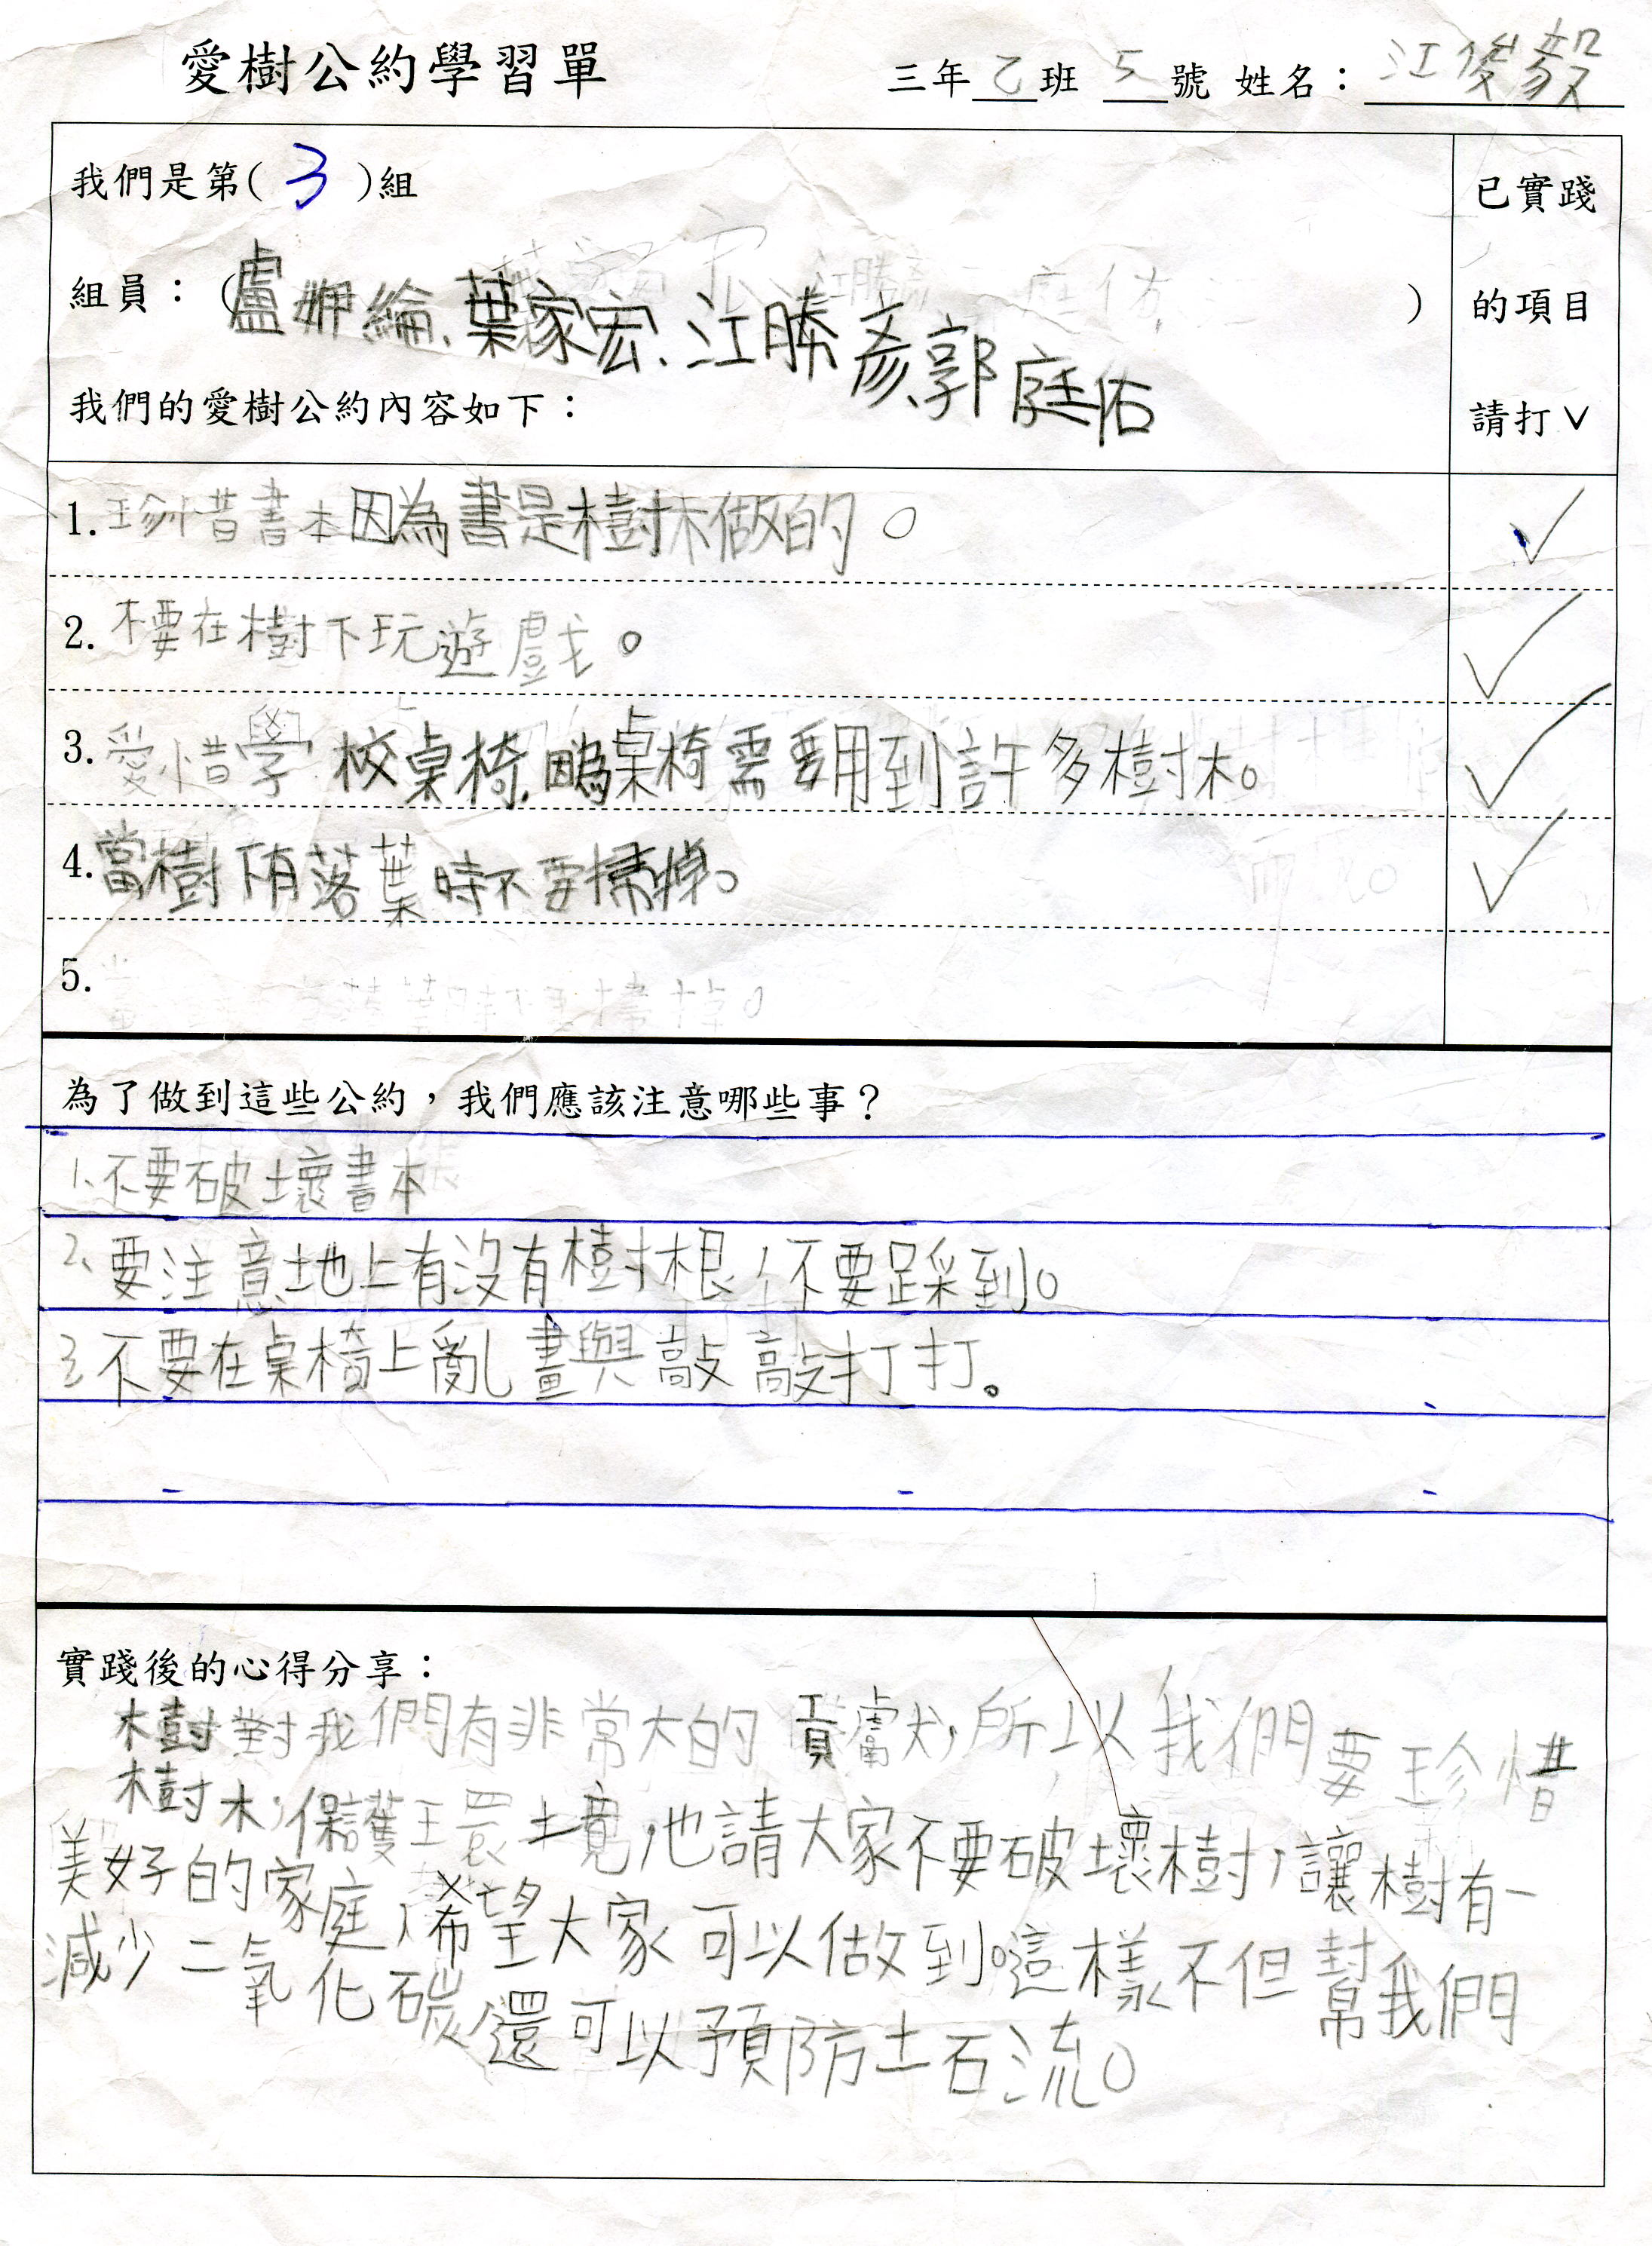 愛樹公約學習單
三年乙班 5號 姓名：江俊毅
我們是第(3)組
組員：(盧 綸、葉家宏、江勝彥、郭庭佑)
我們的愛樹公約內容如下：
已實踐
的項目
請打∨
1.珍惜書本因為書是樹木做的。 ✓
2.不要在樹下玩遊戲。 ✓
3.愛惜學校桌椅,因為桌椅需要用到許多樹木。 ✓
4.當樹下有落葉時不要掃掉。 ✓
5.
為了做到這些公約，我們應該注意哪些事？
1、不要破壞書本
2、要注意地上有沒有樹根，不要踩到。
3、不要在桌椅上亂畫與敲敲打打。
實踐後的心得分享：
樹對我們有非常大的貢獻，所以我們要珍惜
樹木，保護環境，也請大家不要破壞樹，讓樹有一
美好的家庭，希望大家可以做到。這樣不但幫我們
減少二氧化碳，還可以預防土石流。